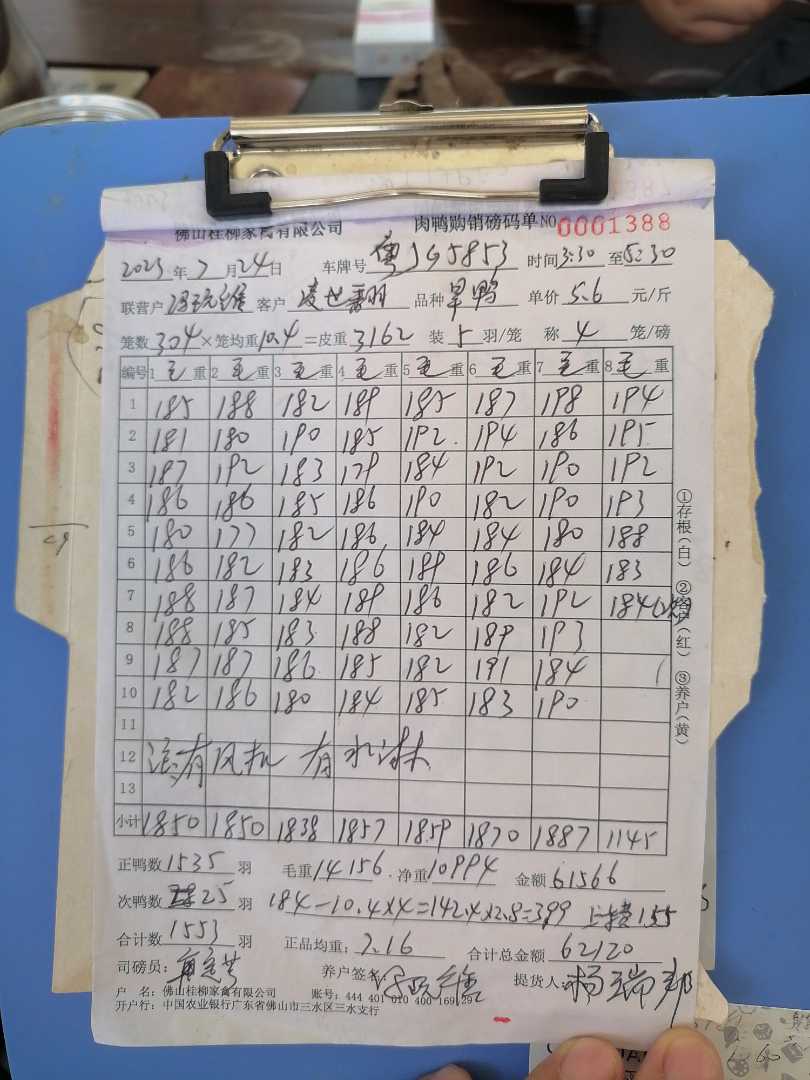 佛山桂柳家禽有限公司 肉鸭购销磅码单 NO 0001388
2023年7月24日 车牌号 粤JG5853 时间 3:30 至 5:30
联营户 客户 凌世 品种 旱鸭 单价 5.6 元/斤
笼数 304 ×笼均重 10.4 =皮重 3162 装 5 羽/笼 称 4 笼/磅
编号 1 毛 重 2 毛 重 3 毛 重 4 毛 重 5 毛 重 6 毛 重 7 毛 重 8 毛 重
1 185 188 182 189 185 187 198 194
2 181 180 190 185 192 194 186 195
3 187 192 183 179 184 192 190 192
4 186 186 185 186 190 182 190 193
5 180 177 182 186 184 184 180 188
6 186 182 183 186 189 186 184 183
7 188 187 184 189 186 182 192 184
8 188 185 183 188 182 189 193
9 187 187 186 185 182 191 184
10 182 186 180 184 185 183 190
11
12 有风机 有水淋
13
小计 1850 1850 1838 1857 1859 1870 1887 1145
正鸭数 1535 羽 毛重 14156 净重 10994 金额 61566
次鸭数 25 羽 184-10.4×4=142.4×2.8=399 155
合计数 1553 羽 正品均重: 7.16 合计总金额 62120
司磅员: 养户签名: 提货人: 杨瑞邦
户 名: 佛山桂柳家禽有限公司 账号: 444 401 010 400 169 297
开户行: 中国农业银行广东省佛山市三水区三水支行
①存根(白) ②客户(红) ③养户(黄)